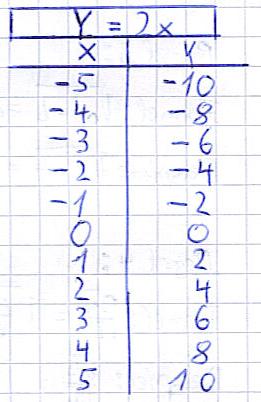 Y = 2x
X Y
-5 -10
-4 -8
-3 -6
-2 -4
-1 -2
0 0
1 2
2 4
3 6
4 8
5 10